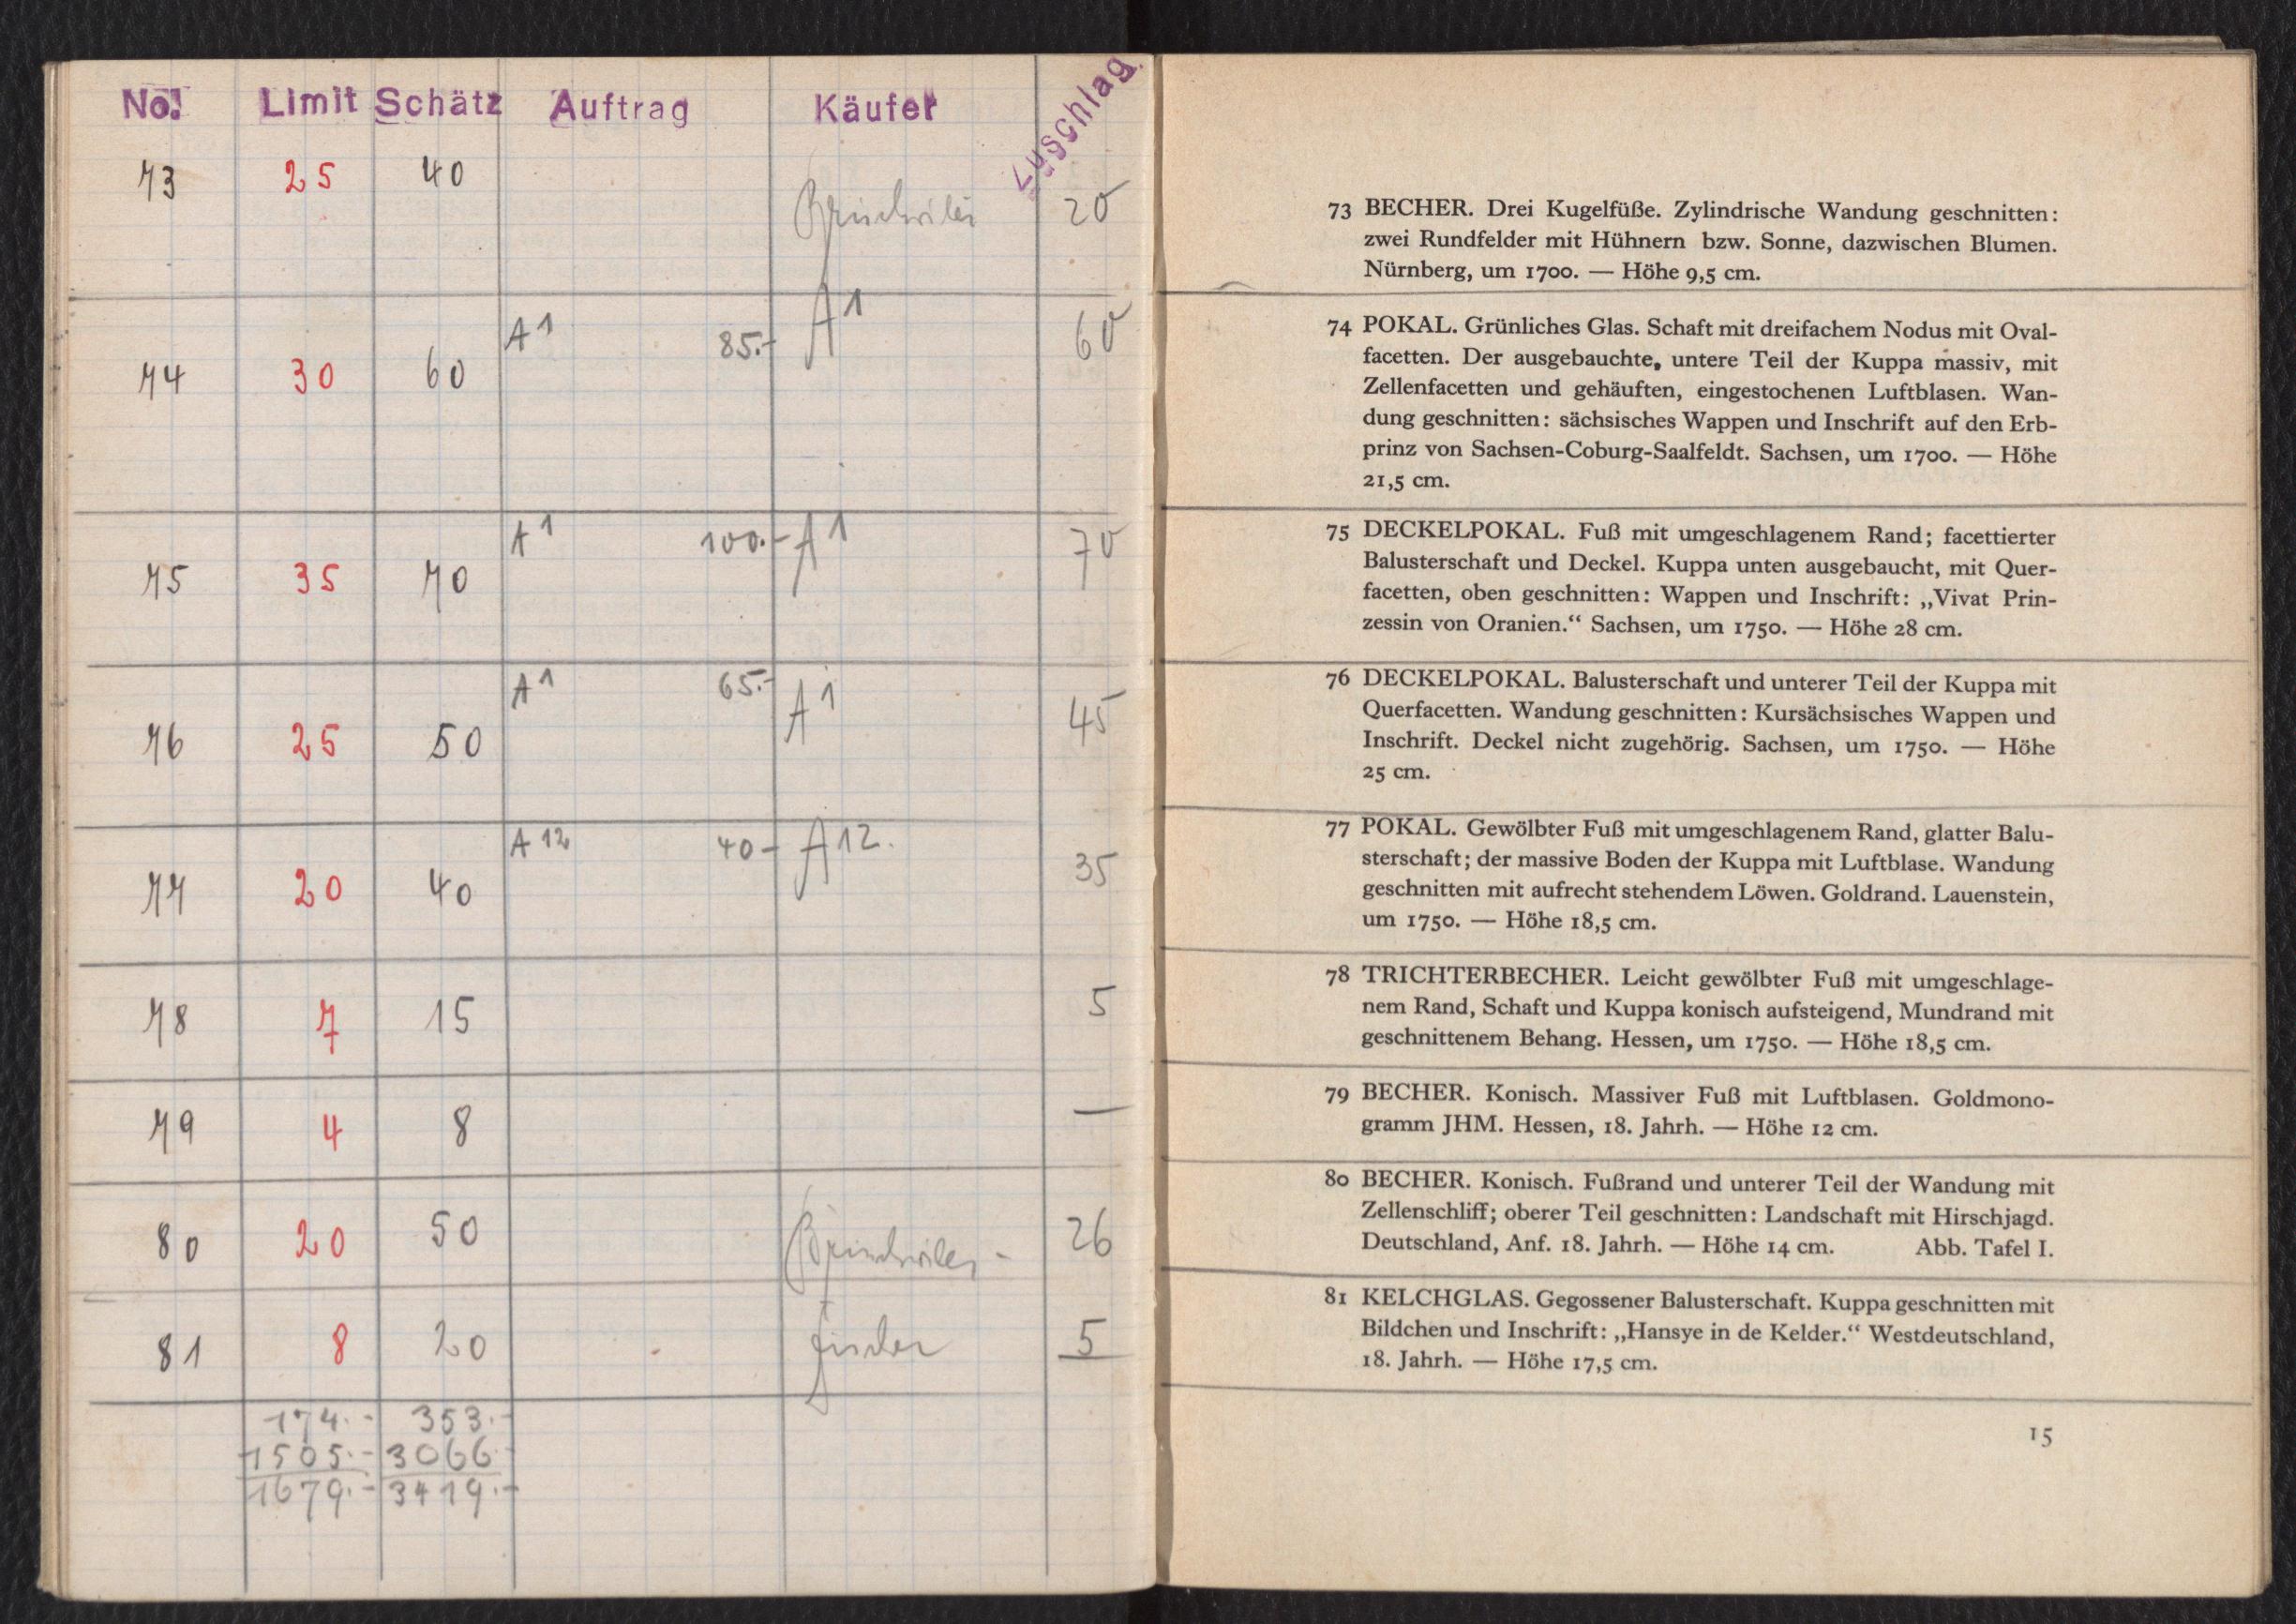 No. Limit Schätz Auftrag Käufer Zuschlag.
73 25 40 20
74 30 60 A 1 85.- A 1 60
75 35 70 A 1 100.- A 1 70
76 25 50 A 1 65.- A 1 45
77 20 40 A 12 40.- A 12. 35
78 7 15 5
79 4 8 —
80 20 50 26
81 8 20 Fischer 5
174.- 353.-
1505.- 3066.-
1679.- 3419.-
73 BECHER. Drei Kugelfüße. Zylindrische Wandung geschnitten:
zwei Rundfelder mit Hühnern bzw. Sonne, dazwischen Blumen.
Nürnberg, um 1700. — Höhe 9,5 cm.
74 POKAL. Grünliches Glas. Schaft mit dreifachem Nodus mit Oval-
facetten. Der ausgebauchte, untere Teil der Kuppa massiv, mit
Zellenfacetten und gehäuften, eingestochenen Luftblasen. Wan-
dung geschnitten: sächsisches Wappen und Inschrift auf den Erb-
prinz von Sachsen-Coburg-Saalfeldt. Sachsen, um 1700. — Höhe
21,5 cm.
75 DECKELPOKAL. Fuß mit umgeschlagenem Rand; facettierter
Balusterschaft und Deckel. Kuppa unten ausgebaucht, mit Quer-
facetten, oben geschnitten: Wappen und Inschrift: „Vivat Prin-
zessin von Oranien.“ Sachsen, um 1750. — Höhe 28 cm.
76 DECKELPOKAL. Balusterschaft und unterer Teil der Kuppa mit
Querfacetten. Wandung geschnitten: Kursächsisches Wappen und
Inschrift. Deckel nicht zugehörig. Sachsen, um 1750. — Höhe
25 cm.
77 POKAL. Gewölbter Fuß mit umgeschlagenem Rand, glatter Balu-
sterschaft; der massive Boden der Kuppa mit Luftblase. Wandung
geschnitten mit aufrecht stehendem Löwen. Goldrand. Lauenstein,
um 1750. — Höhe 18,5 cm.
78 TRICHTERBECHER. Leicht gewölbter Fuß mit umgeschlage-
nem Rand, Schaft und Kuppa konisch aufsteigend, Mundrand mit
geschnittenem Behang. Hessen, um 1750. — Höhe 18,5 cm.
79 BECHER. Konisch. Massiver Fuß mit Luftblasen. Goldmono-
gramm JHM. Hessen, 18. Jahrh. — Höhe 12 cm.
80 BECHER. Konisch. Fußrand und unterer Teil der Wandung mit
Zellenschliff; oberer Teil geschnitten: Landschaft mit Hirschjagd.
Deutschland, Anf. 18. Jahrh. — Höhe 14 cm. Abb. Tafel I.
81 KELCHGLAS. Gegossener Balusterschaft. Kuppa geschnitten mit
Bildchen und Inschrift: „Hansye in de Kelder.“ Westdeutschland,
18. Jahrh. — Höhe 17,5 cm.
15